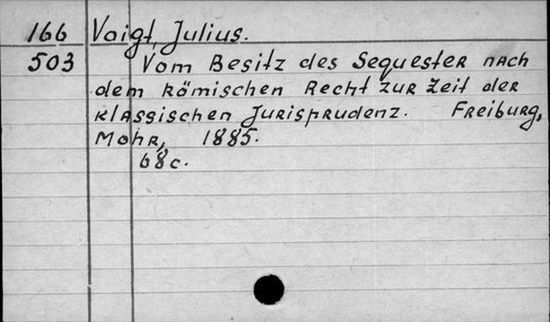 166 Voigt, Julius.
503 Vom Besitz des Sequester nach
dem römischen Recht zur Zeit der
klassischen Jurisprudenz. Freiburg,
Mohr, 1885.
68c.